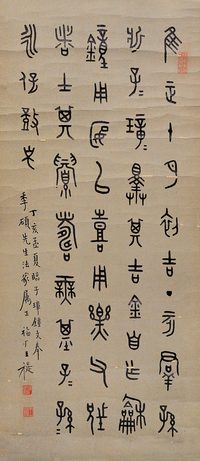 隹正十月初吉丁亥群孫
斨子璋擇其吉金自乍龢
鐘用匽以喜用樂父兄
者士其眉壽無基子孫
永保鼓之
丁亥孟夏臨子璋鐘文奉
季碩先生法家屬正 福厂王禔